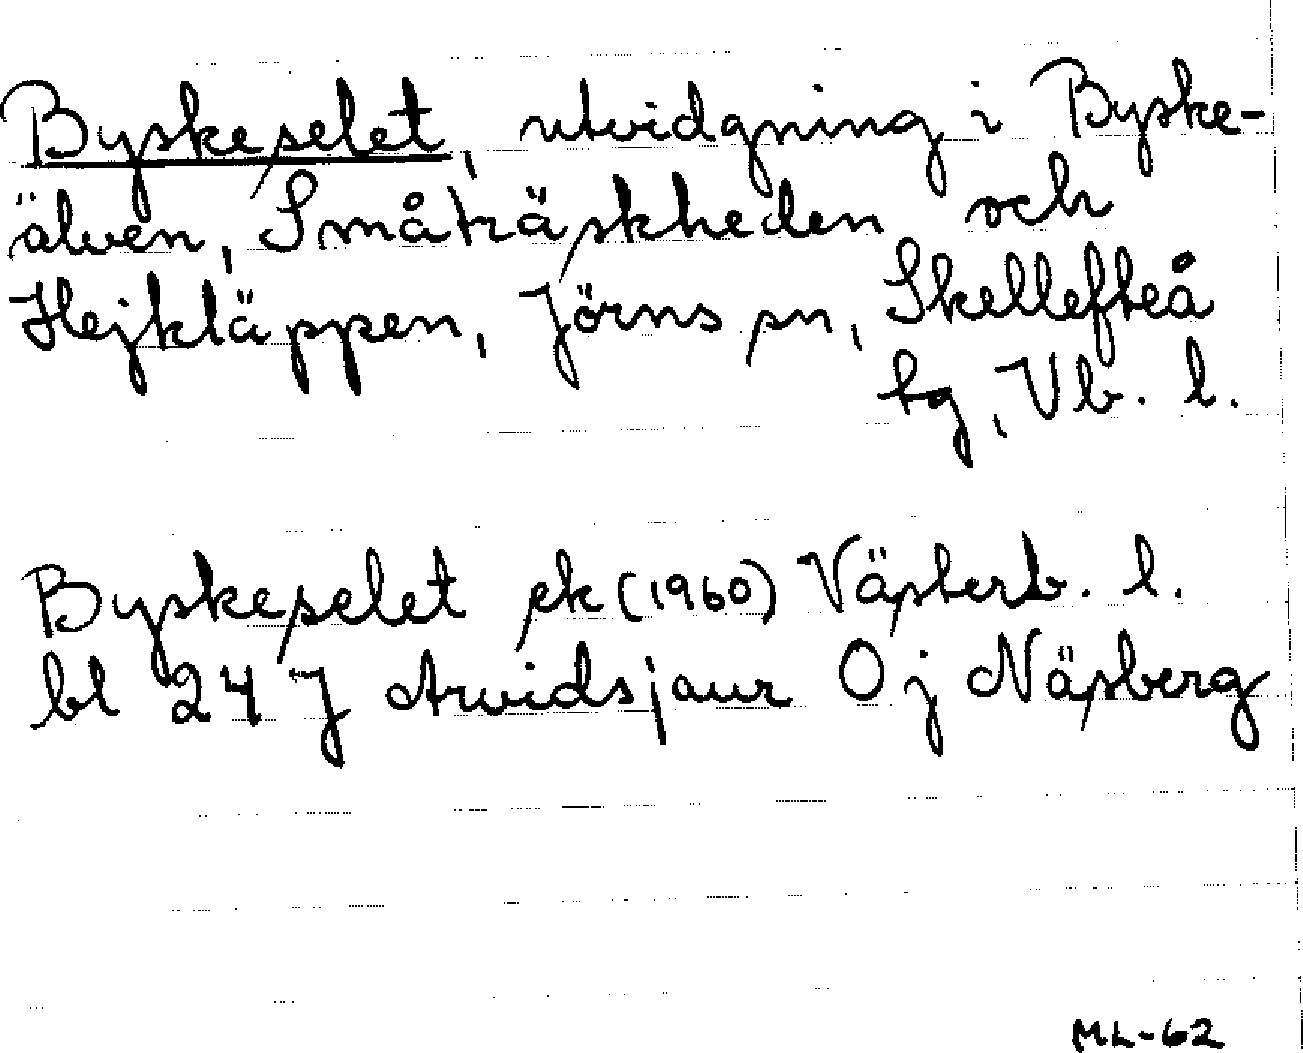 Byskeselet, utvidgning i Byske-
älven, Småträskheden och
Hejkläppen, Jörns sn, Skellefteå
tg, Vb. l.
Byskeselet ek (1960) Västerb. l.
bl 24 J Arvidsjaur O j Näsberg
ML-62